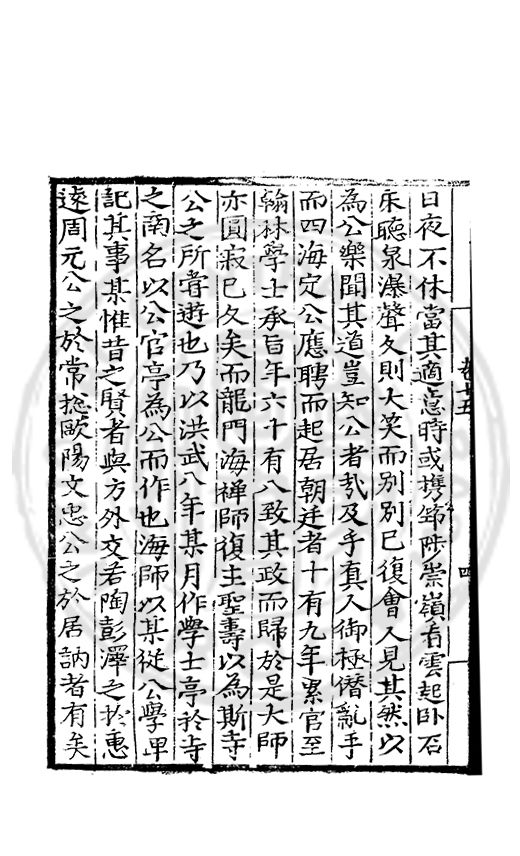 日夜不休當其適意時或携筇陟崇嶺看雲起卧石
床聽泉瀑聲久則大笑而别别已復會人見其然以
為公樂聞其道豈知公者㢤及乎真人御極僭亂乎
而四海定公應聘而起居朝廷者十有九年累官至
翰林學士承旨年六十有八致其政而歸於是大師
亦圓寂已久矣而龍門海禅師復主聖壽以為斯寺
公之所甞遊也乃以洪武八年某月作學士亭於寺
之南名以公官亭為公而作也海師以某從公學畀
記其事某惟昔之賢者與方外交若陶彭澤之於惠
遠周元公之於常揔歐陽文忠公之於居訥者有矣
卷十五
四